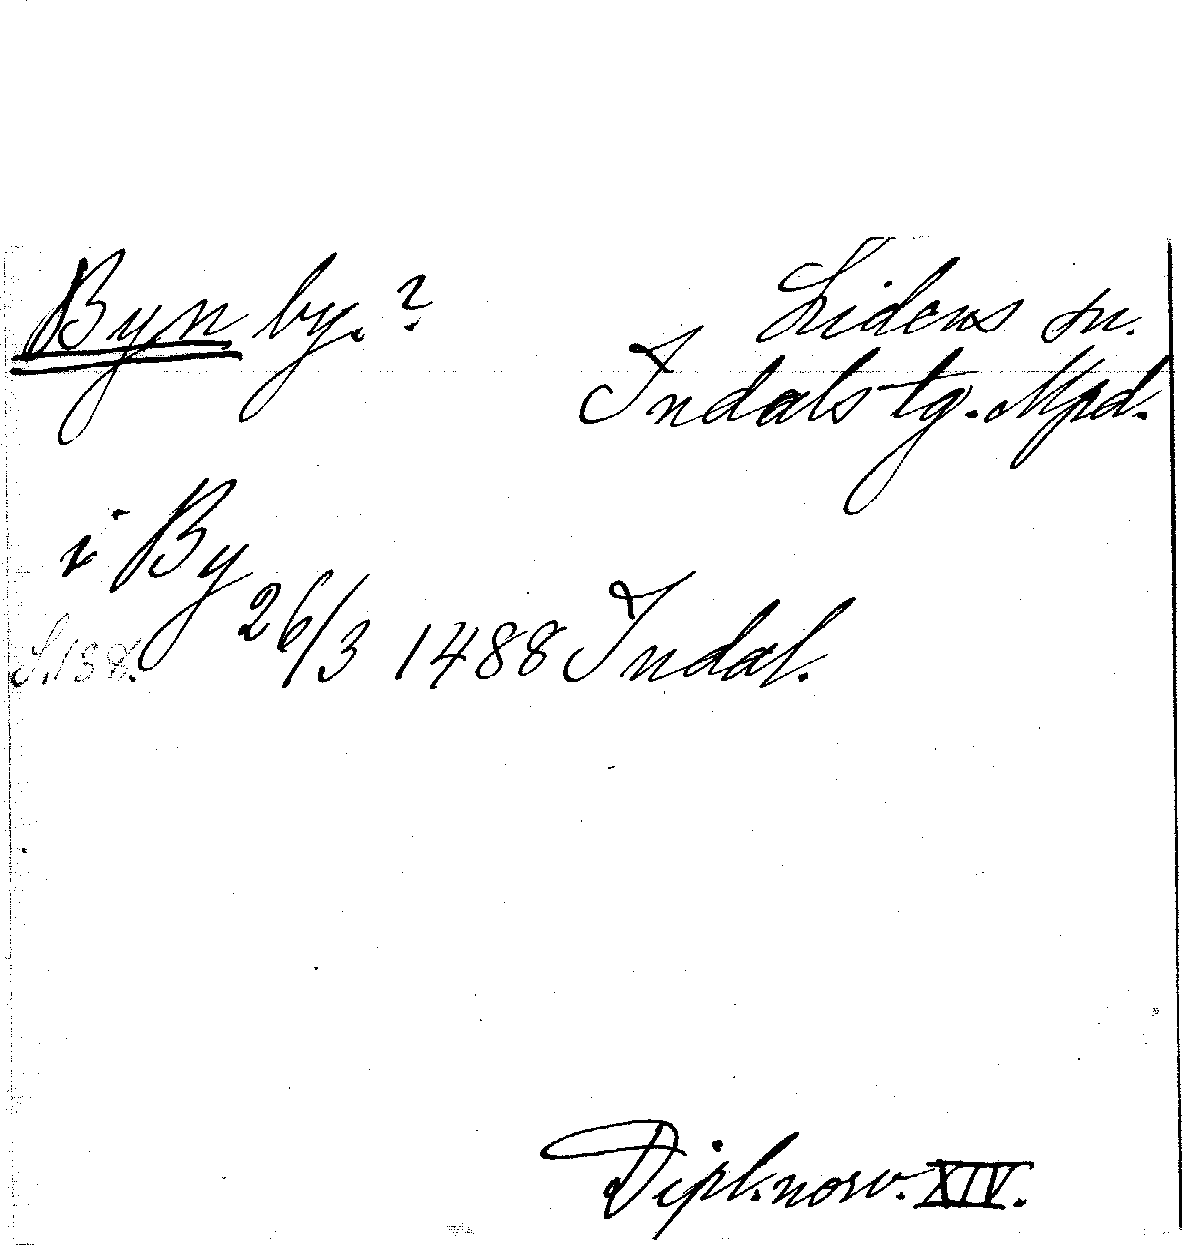 Byn by.? Lidens sn.
Indals tg. Mpd.
i By
S. 138. 26/3 1488 Indal.
Dipl. norv. XIV.